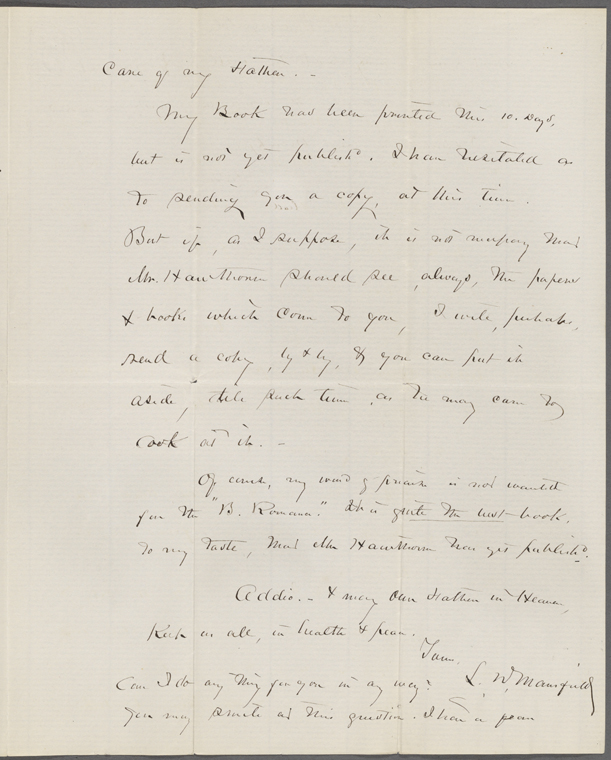 Care of my Father. -
My Book has been printed this 10. Days,
but is not yet publish'd. I have hesitated as
to sending you a copy, at this time.
But if, as I suppose, it is not necessary that
Mr. Hawthorne should see, always, the papers
& books which come to you, I will, perhaps,
send a copy, by & by, & you can put it
aside, till such time, as he may care to
look at it. -
Of course, my word of praise is not wanted
for the "B. Romance." It is quite the best book,
to my taste, that Mr Hawthorne has yet publish'd.
Addio. - & may Our Father in Heaven,
Keep us all, in health & peace.
Yours.
L. W. Mansfield
Can I do any thing for you in any way?
You may smile at this question. I have a